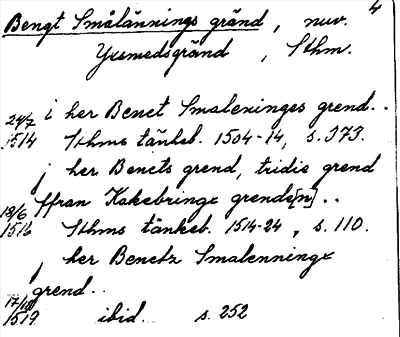 4
Bengt Smålännings gränd, nuv.
Yxsmedsgränd, Sthm.
24/7 i her Benct Smalexinges grend..
1514 Sthms tänkeb. 1504-14, s. 373.
j her Bencts grend, tridie grend
ffran Kakebringx grende[n]..
18/6
1516 Sthms tänkeb. 1514-24, s. 110.
j her Benctz Smalenningx
grend..
1519 ibid. s. 252